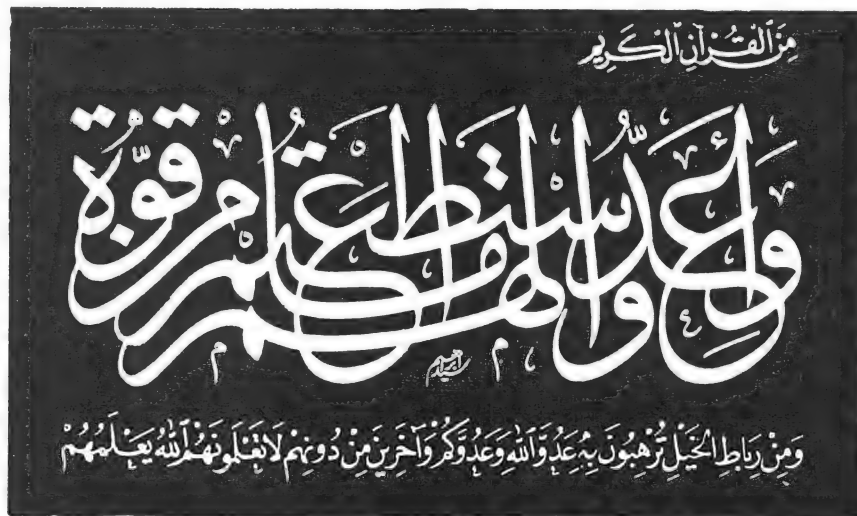 مِنَ ٱلْقُرْآنِ ٱلْكَرِيمِ
وَأَعِدُّوا لَهُمْ مَا اسْتَطَعْتُمْ مِنْ قُوَّةٍ
سيد إبراهيم
وَمِنْ رِبَاطِ الْخَيْلِ تُرْهِبُونَ بِهِ عَدُوَّ اللهِ وَعَدُوَّكُمْ وَآخَرِينَ مِنْ دُونِهِمْ لَا تَعْلَمُونَهُمُ اللهُ يَعْلَمُهُمْ